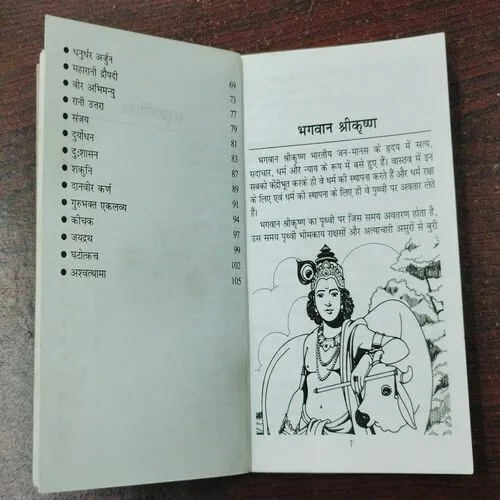 ● धनुर्धर अर्जुन 69
● महारानी द्रौपदी 73
● वीर अभिमन्यु 77
● रानी उत्तरा 79
● संजय 81
● दुर्योधन 83
● दु:शासन 87
● शकुनि 89
● दानवीर कर्ण 91
● गुरुभक्त एकलव्य 94
● कीचक 97
● जयद्रथ 99
● घटोत्कच 102
● अश्वत्थामा 105
भगवान श्रीकृष्ण
भगवान श्रीकृष्ण भारतीय जन-मानस के हृदय में सत्य,
सदाचार, धर्म और न्याय के रूप में बसे हुए हैं। वास्तव में इन
सबको केंद्रीभूत करके ही वे धर्म की स्थापना करते हैं और धर्म रक्षा
के लिए एवं धर्म की स्थापना के लिए ही वे पृथ्वी पर अवतार लेते
हैं।
भगवान श्रीकृष्ण का पृथ्वी पर जिस समय अवतरण होता है,
उस समय पृथ्वी भीमकाय राक्षसों और अत्याचारी असुरों से बुरी
7